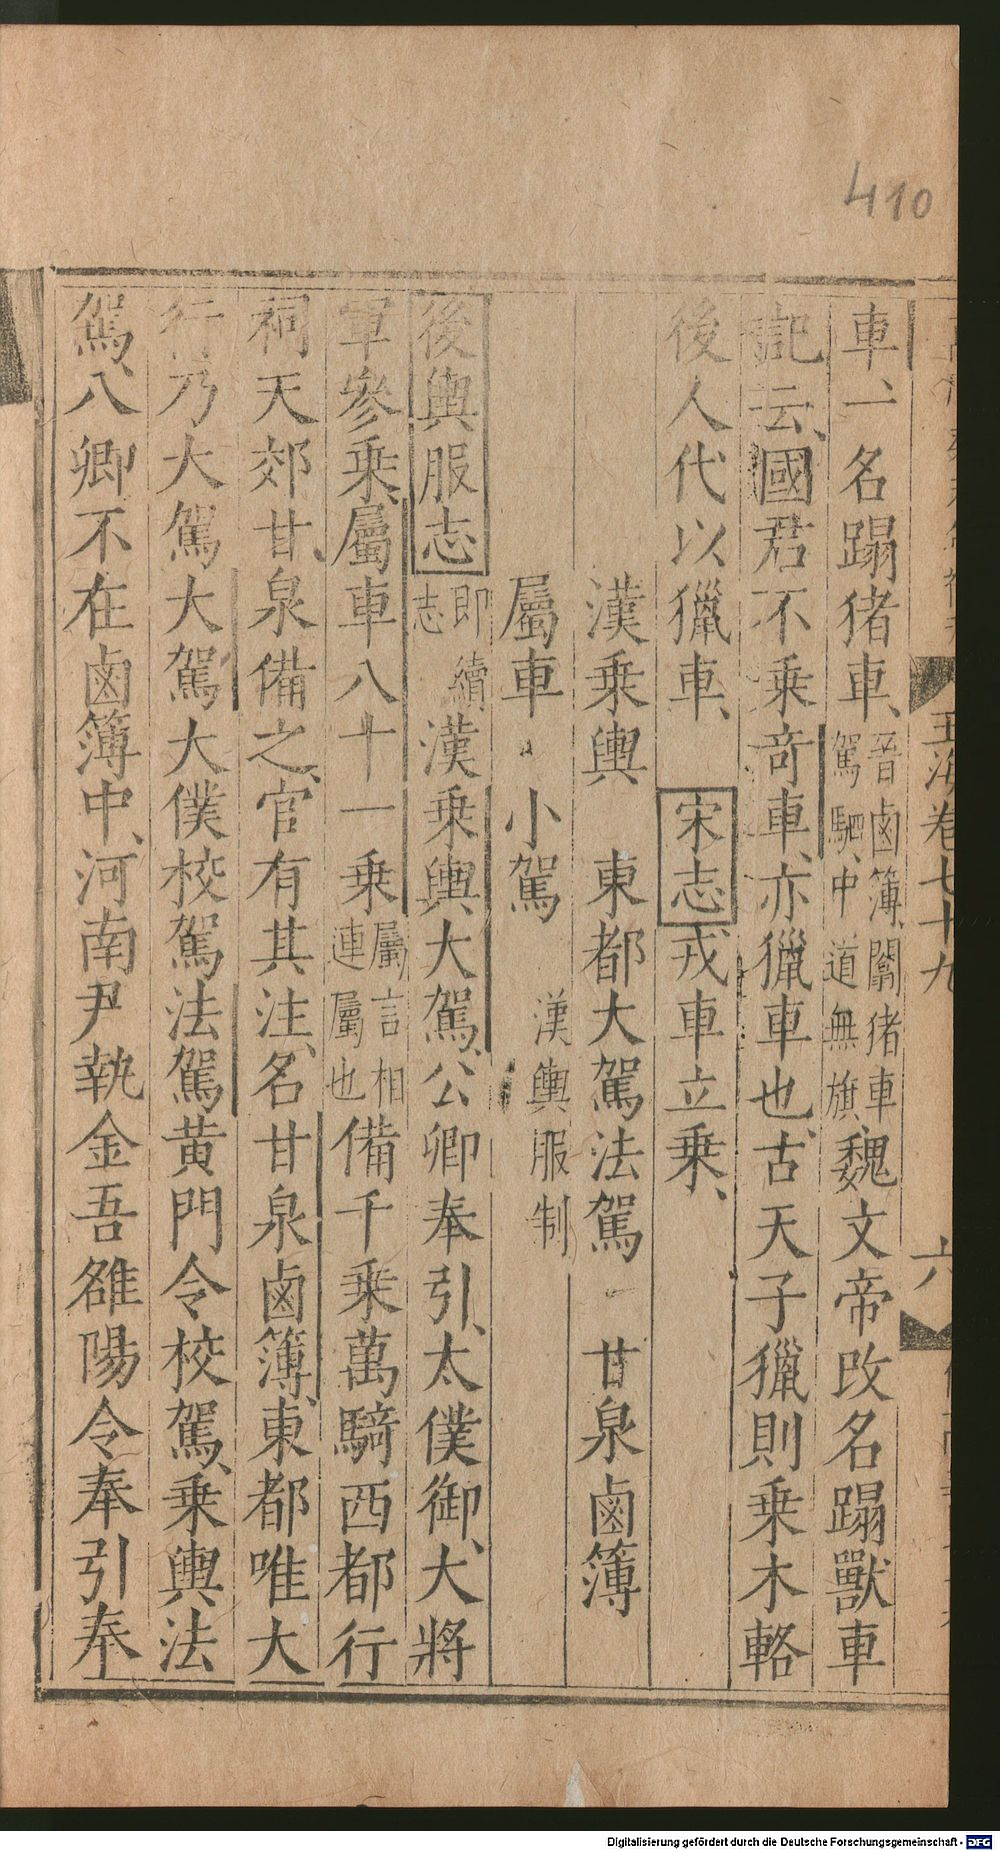 410
玉海卷七十九
六
車、一名蹋猪車、晉鹵簿、闟猪車駕駟、中道無旗、魏文帝改名蹋獸車
記云、國君不乗奇車、亦獵車也、古天子獵則乗木輅
後人代以獵車、宋志戎車立乗、
漢乗輿 東都大駕法駕 甘泉鹵簿
屬車 小駕 漢輿服制
後輿服志即續志漢乗輿大駕、公卿奉引、太僕御、大將
軍參乗、屬車八十一乗屬言相連屬也備千乗萬騎西都行
祠天郊甘、泉備之、官有其注、名甘泉鹵簿、東都唯大
行乃大駕大駕大僕校駕法駕黄門令校駕、乗輿法
駕、八卿不在鹵簿中、河南尹執金吾雒陽令奉引奉
Digitalisierung gefördert durch die Deutsche Forschungsgemeinschaft - DFG